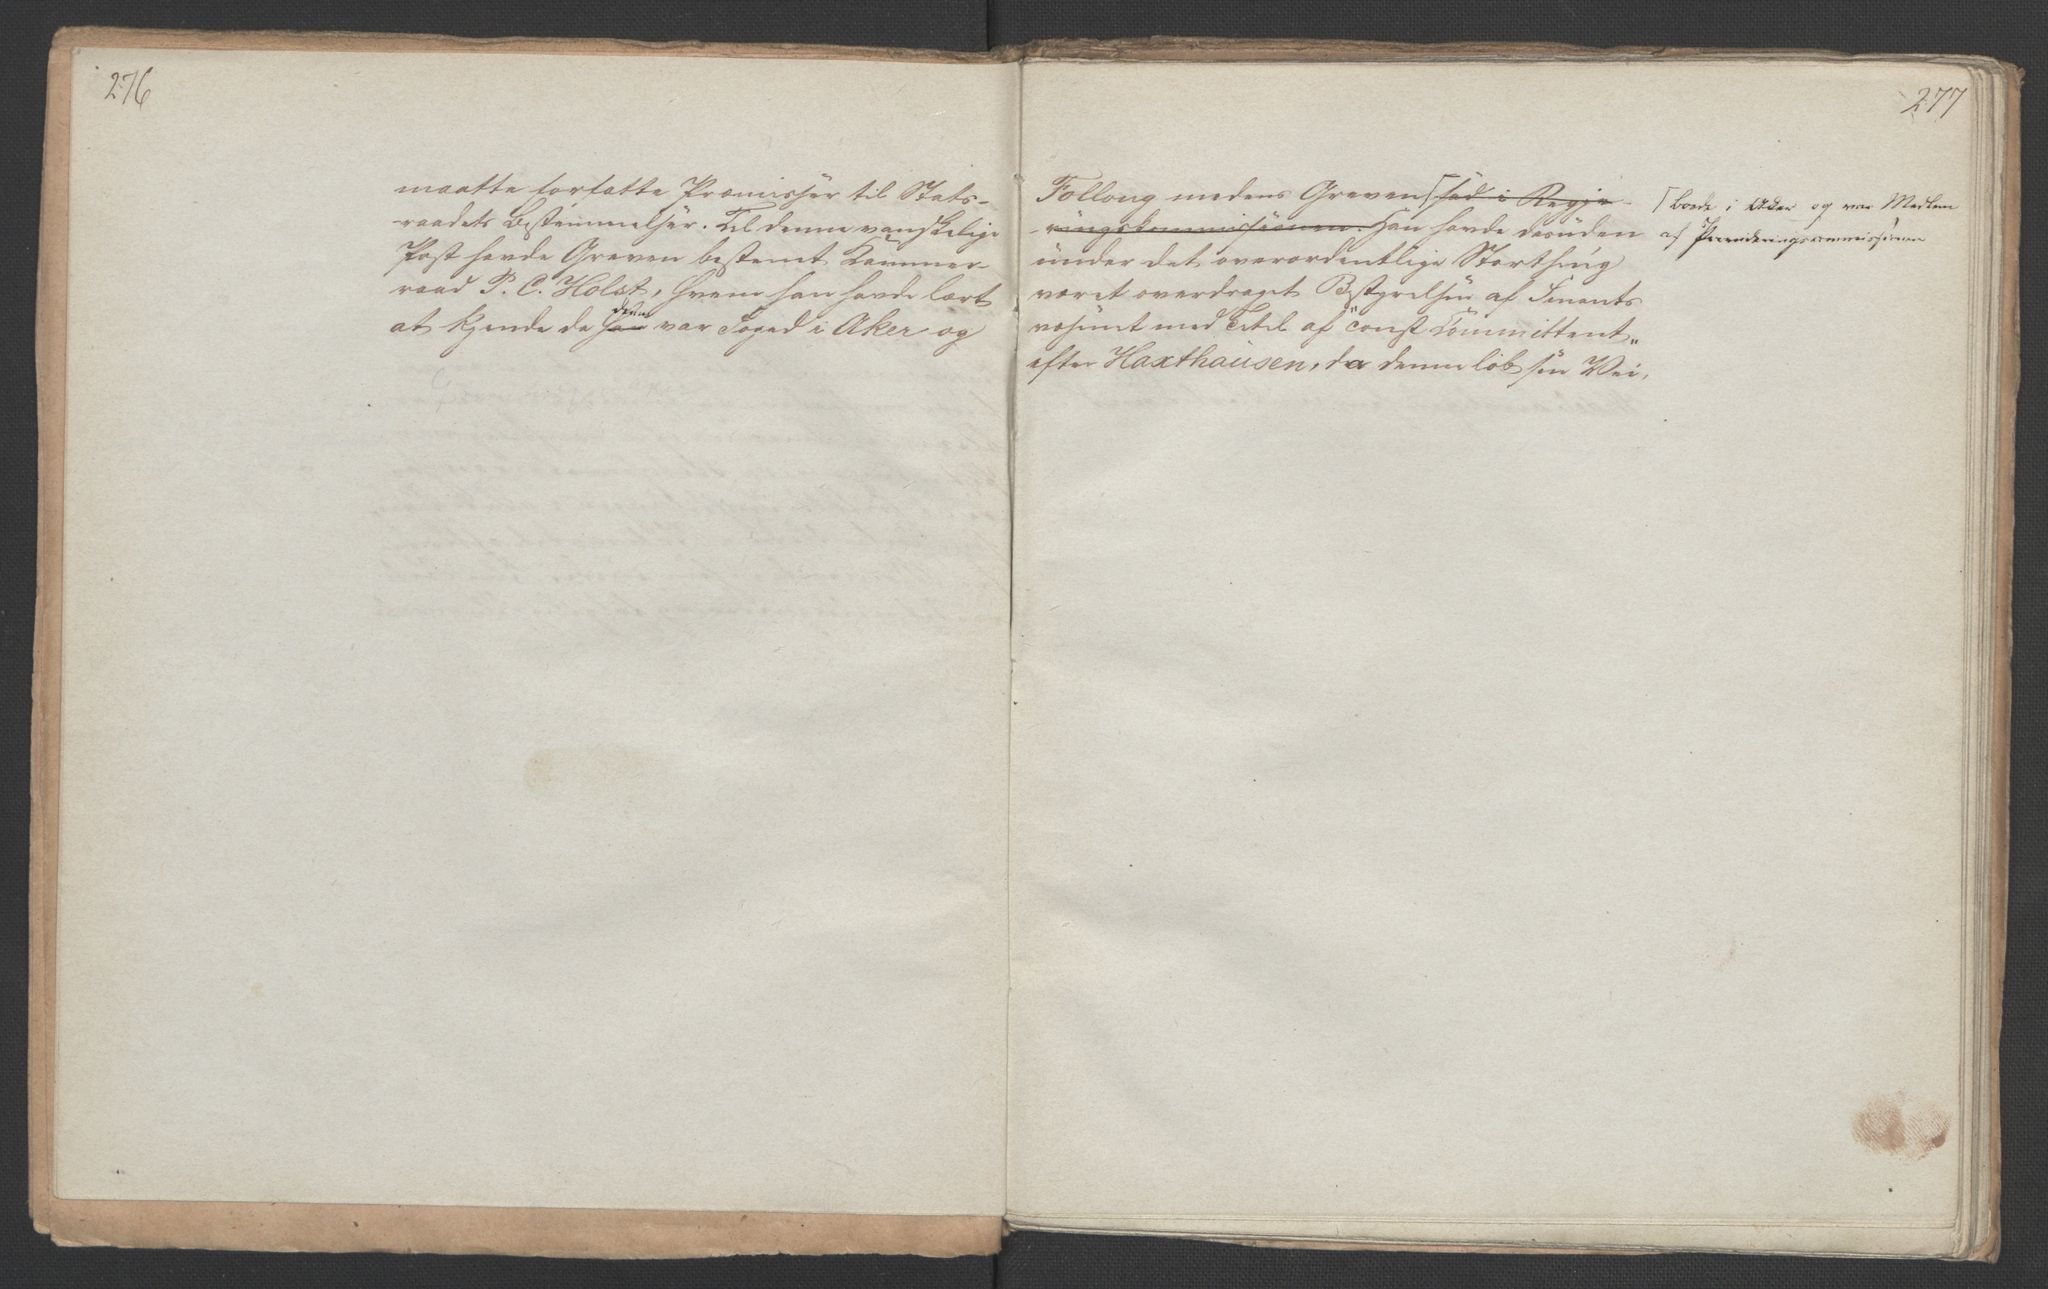 276
maatte forfatte Præmisser til Stats-
raadets Bestemmelser. Til denne vanskelige
Post havde Greven bestemt Kammer-
raad P. C. Holst, hvem han havde lært
at kjende da han denne var Foged i Aker og
277
Follong medens Greven sad i Regje-
ringskommissionen. Han havde desuden
under det overordentlige Storthing
været overdraget Bestyrelsen af Finants
væsenet med Titel af "const Committent"
efter Haxthausen, da denne løb sin Vei.
boede i Aker og var Medlem
af Provideringscommissionen